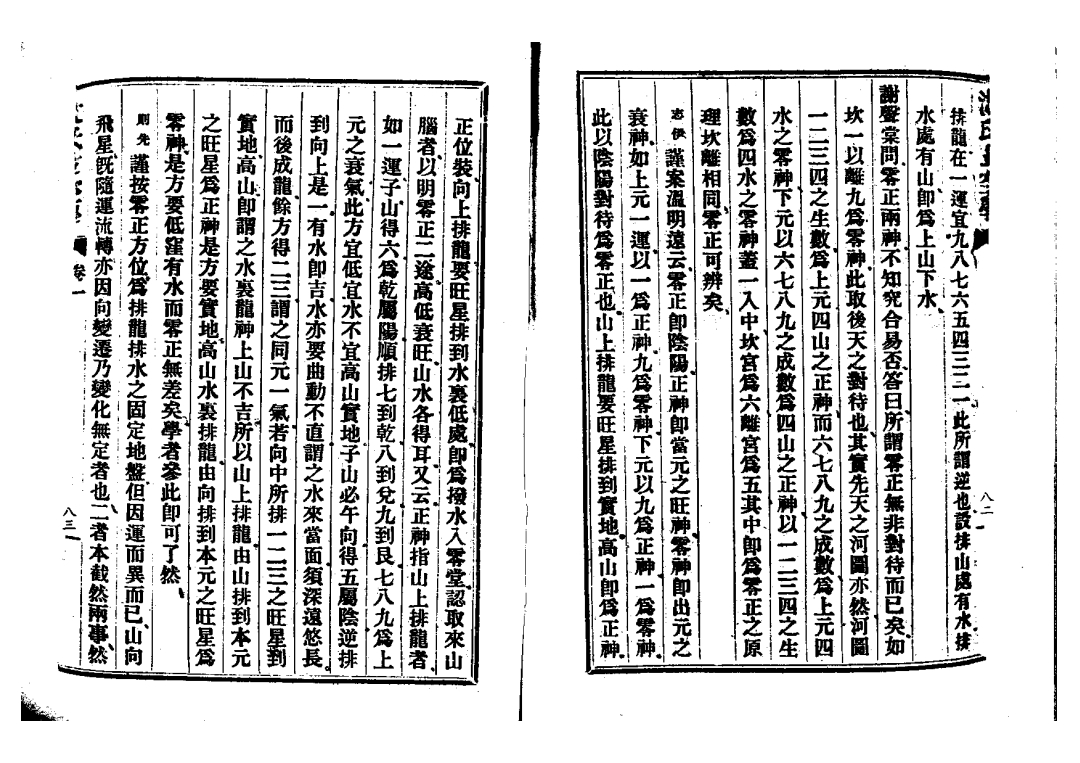 排龍在一運宜九八七六五四三二一此所謂逆也設排山處有水排
水處有山卽爲上山下水
謝聲棠問零正兩神不知究合易否答曰所謂零正無非對待而已矣如
坎一以離九爲零神此取後天之對待也其實先天之河圖亦然河圖
一二三四之生數爲上元四山之正神而六七八九之成數爲上元四
水之零神下元以六七八九之成數爲四山之正神以一二三四之生
數爲四水之零神蓋一入中坎宮爲六離宮爲五其中卽爲零正之原
理坎離相同零正可辨矣
志伊 謹案溫明遠云零正卽陰陽正神卽當元之旺神零神卽出元之
衰神如上元一運以一爲正神九爲零神下元以九爲正神一爲零神
此以陰陽對待爲零正也山上排龍要旺星排到實地高山卽爲正神
八二
正位裝向上排龍要旺星排到水裏低處卽爲撥水入零堂認取來山
腦者以明零正二途高低衰旺山水各得耳又云正神指山上排龍者
如一運子山得六爲乾屬陽順排七到乾八到兌九到艮七八九爲上
元之衰氣此方宜低宜水不宜高山實地子山必午向得五屬陰逆排
到向上是一有水卽吉水亦要曲動不直謂之水來當面須深遠悠長
而後成龍餘方得二三謂之同元一氣若向中所排一二三之旺星到
實地高山卽謂之水裏龍神上山不吉所以山上排龍由山排到本元
之旺星爲正神是方要實地高山水裏排龍由向排到本元之旺星爲
零神是方要低窪有水而零正無差矣學者參此卽可了然
則先 謹按零正方位爲排龍排水之固定地盤但因運而異而已山向
飛星旣隨運流轉亦因向變遷乃變化無定者也二者本截然兩事然
卷一
八三